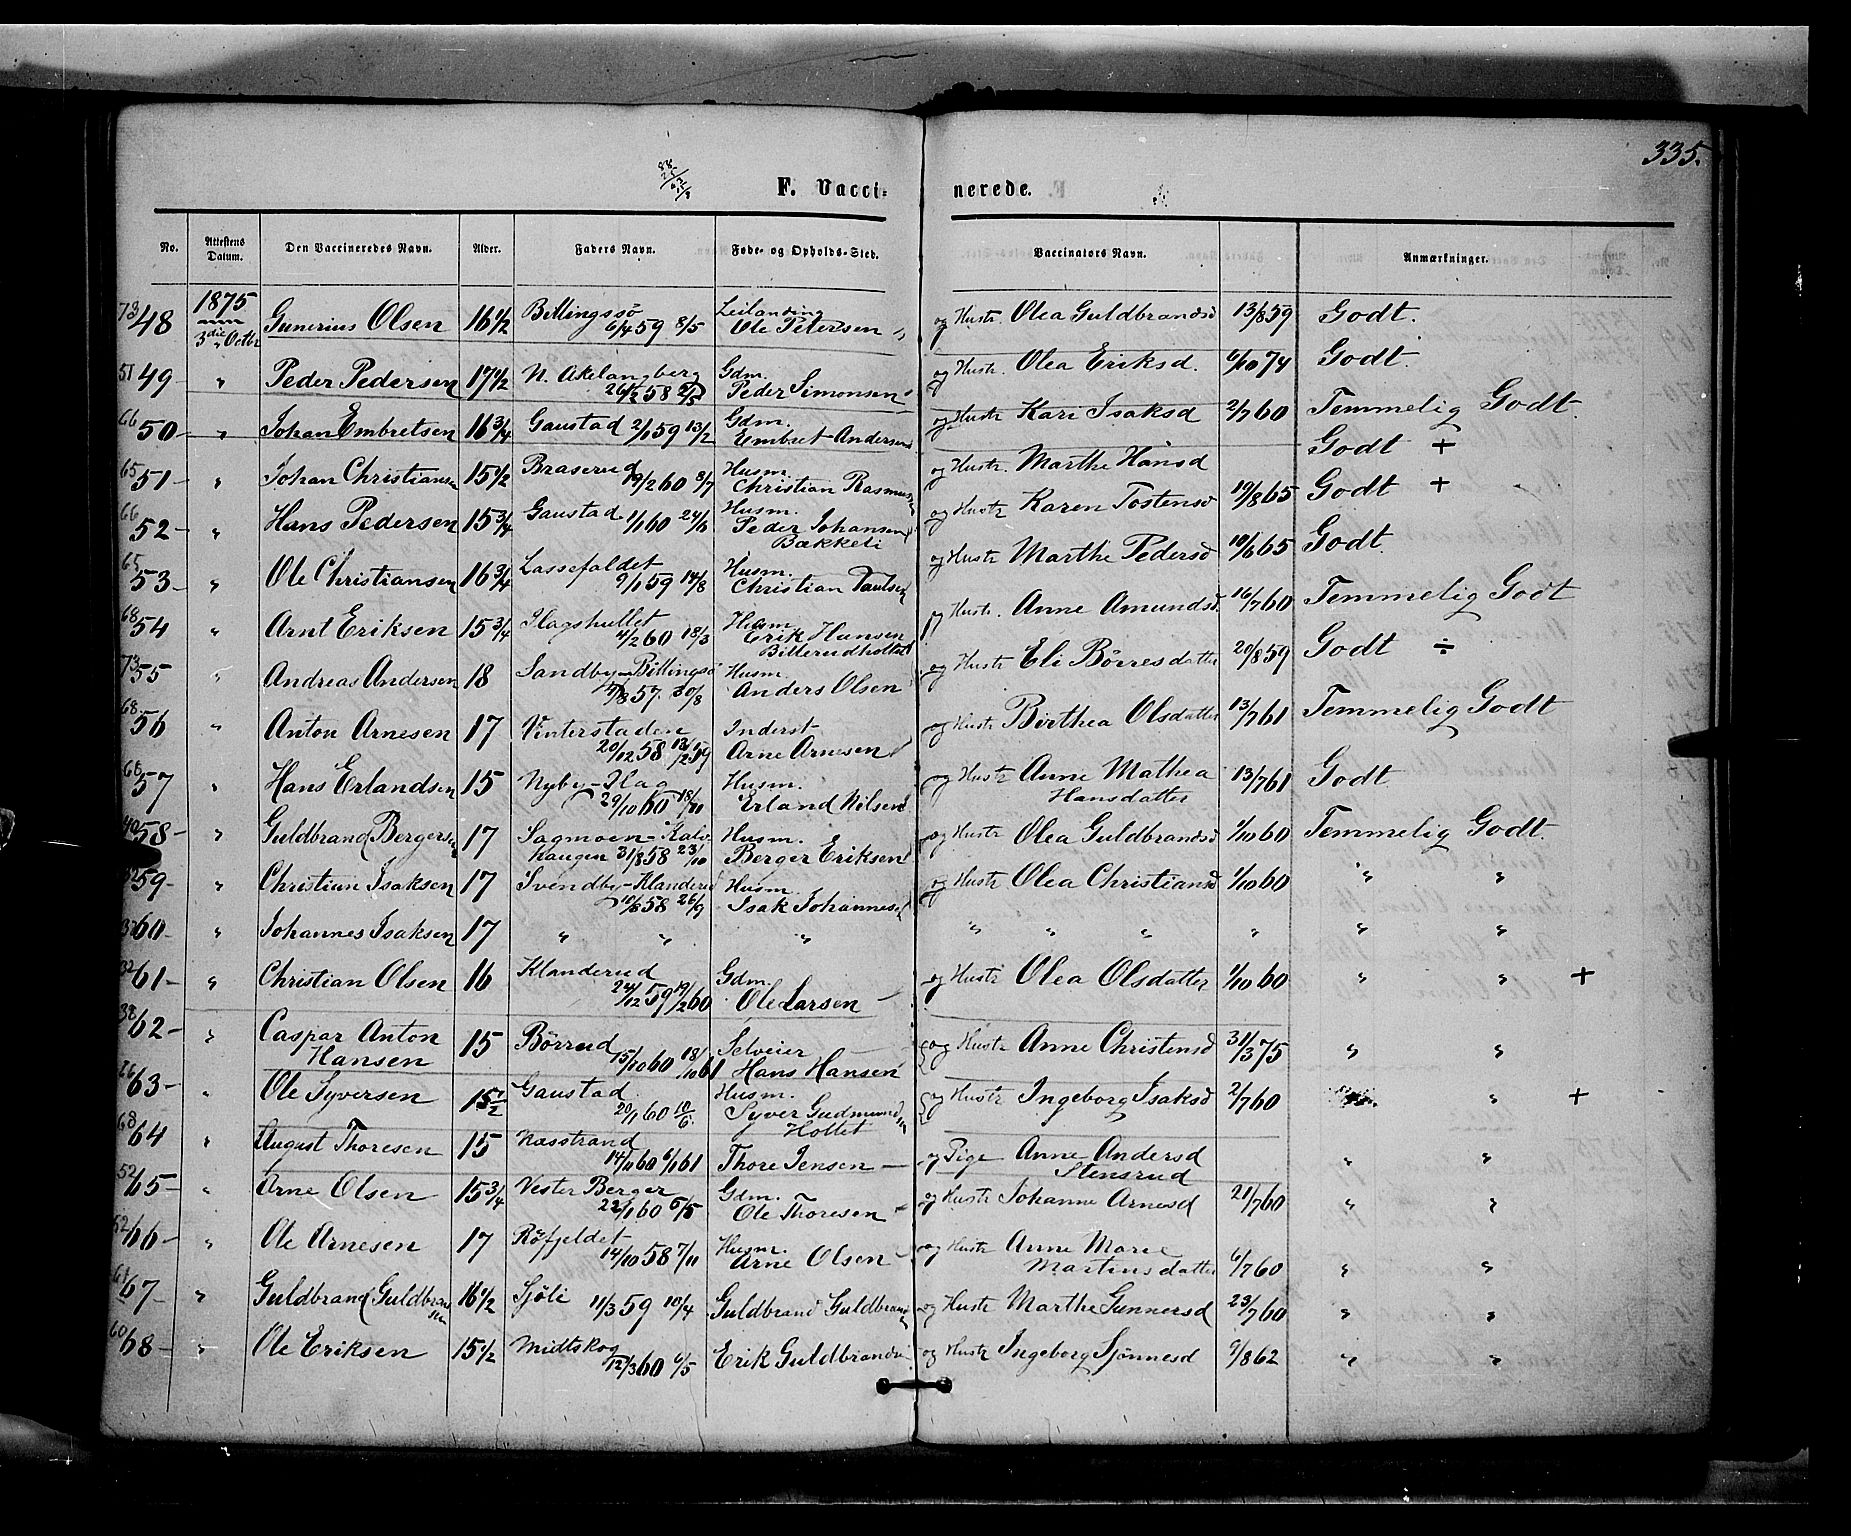 335.
F. Vacci- nerede.
No. Attestens Datum. Den Vaccineredes Navn. Alder. Faders Navn. Føde- og Opholds-Sted. Vaccinators Navn. Anmærkninger.
1875
3die Octbr
73 48 Gunerius Olsen 16 1/2 Billingssø 6/4 59 8/5 Leilænding Ole Petersen og Hustr. Olea Guldbrandsd 13/8 59 Godt.
51 49 - " Peder Pedersen 17 1/2 N. Akelangberg 26/2 58 Gdm. Peder Simonsen og Hustr. Olea Eriksd. 6/10 74 Godt.
66 50 - " Johan Embretsen 16 3/4 Gaustad 2/1 59 13/2 Gdm. Embret Andersen og Hustr. Kari Isaksd 2/7 60 Temmelig Godt.
65 51 - " Johan Christiansen 15 1/2 Braserud 19/2 60 8/7 Husm. Christian Rasmussen og Hustr. Marthe Hansd Godt +
66 52 - " Hans Pedersen 15 3/4 Gaustad 1/1 60 24/6 Husm. Peder Johansen Bækkeli og Hustr Karen Tostensd 19/8 65 Godt +
65 53 - " Ole Christiansen 16 3/4 Lassefaldet 9/1 59 14/8 Husm. Christian Paulsen og Hustr Marthe Pedersd 10/6 65 Godt.
68 54 " Arnt Eriksen 15 3/4 Hagshullet 4/2 60 18/3 Husm. Erik Hansen Billerudholtet og Hustr. Anne Amundsd. 16/7 60 Temmelig Godt
73 55 " Andreas Andersen 18 Sandby - Billingsø 57. 30/8 Husm. Anders Olsen og Hustr Eli Børresdatter 20/8 59 Godt ÷
68 56 " Anton Arnesen 17 Vinterstaden 20/12 58 13/2 59 Inderst Arne Arnesen og Hustr Birthea Olsdatter 13/7 61 Temmelig Godt
68 57 " Hans Erlandsen 15 Nyby - Hag 29/10 60 18/11 Husm. Erland Nilsen og Hustr Anne Mathea Hansdatter 13/7 61 Godt
40 58 - " Guldbrand Bergersen 17 Sagmoen - Kalvhaugen 31/8 58 23/10 Husm. Berger Eriksen og Hustr Olea Guldbrandsd 1/10 60 Temmelig Godt.
32 59 - " Christian Isaksen 17 Svendby - Klanderud 10/8 58 26/9 Husm. Isak Johannesen og Hustr Olea Christiansd 1/10 60 " "
32 60 - " Johannes Isaksen 17 " " " " " " " " "
32 61 - " Christian Olsen 16 Klanderud 24/12 59 19/2 60 Gdm. Ole Larsen - og Hustr Olea Olsdatter 1/10 60 " " +
38 62 - " Caspar Anton Hansen 15 Børrud 15/10 60 18/10 61 Selveier Hans Hansen og Hustr Anne Christensd 31/3 75 " "
26 63 - " Ole Syversen 15 1/2 Gaustad 20/1 60 10/6. Husm. Syver Gudmundsen Holtet og Hustr Ingeborg Isaksd 2/7 60 " +
68 64 " August Thoresen 15 Næsstrand 14/11 60 6/1 61 Thore Jensen - og Pige Anne Andersd Stensrud " "
52 65 - " Arne Olsen 15 3/4 Vester Berger 22/1 60 6/5 Gdm. Ole Thoresen - og Hustr Johanne Arnesd 21/7 60 " "
52 66 - " Ole Arnesen 17 Røfjeldet 14/10 58 7/11 Husm. Arne Olsen - og Hustr Anne Marie Martinsdatter 6/7 60 " "
61 67 - " Guldbrand Guldbransen 16 1/2 Sjøli 11/3 59 10/4 Guldbrand Guldbrandsen og Hustr Marthe Gunnersd 23/7 60 " "
60 68 - " Ole Eriksen 15 1/2 Midtskog 12/3 60 6/5 Erik Guldbrandsen og Hustr Ingeborg Sjønnesd 9/8 62 " "